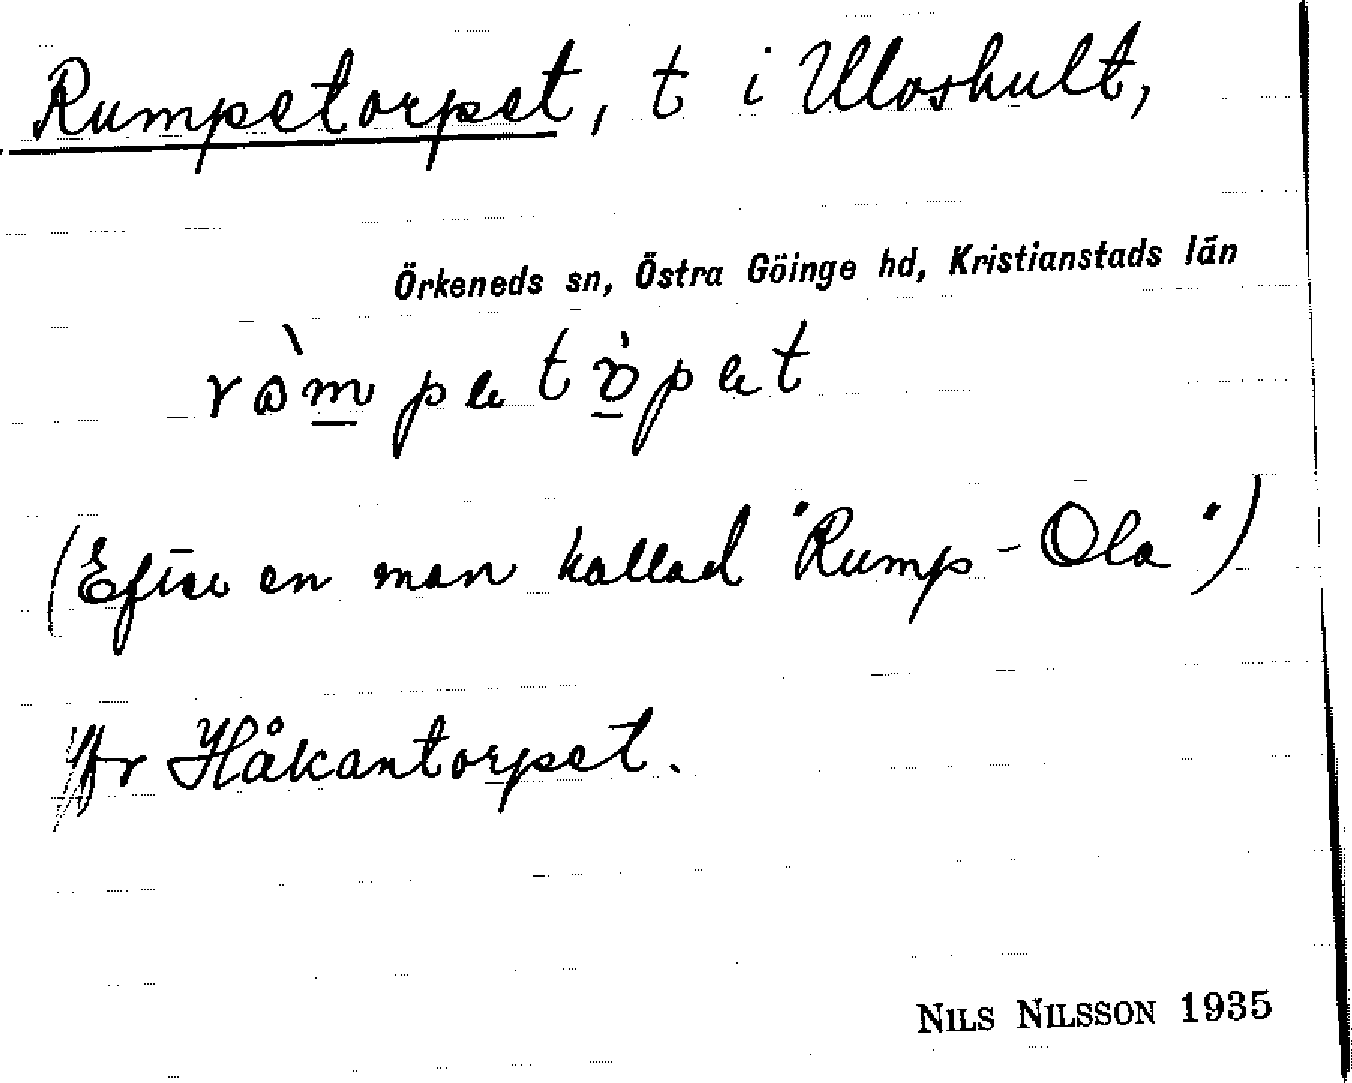 Rumpetorpet, t i Uloshult,
Örkeneds sn, Östra Göinge hd, Kristianstads län
(Efter en man kallad "Rump-Ola")
Håkantorpet.
NILS NILSSON 1935